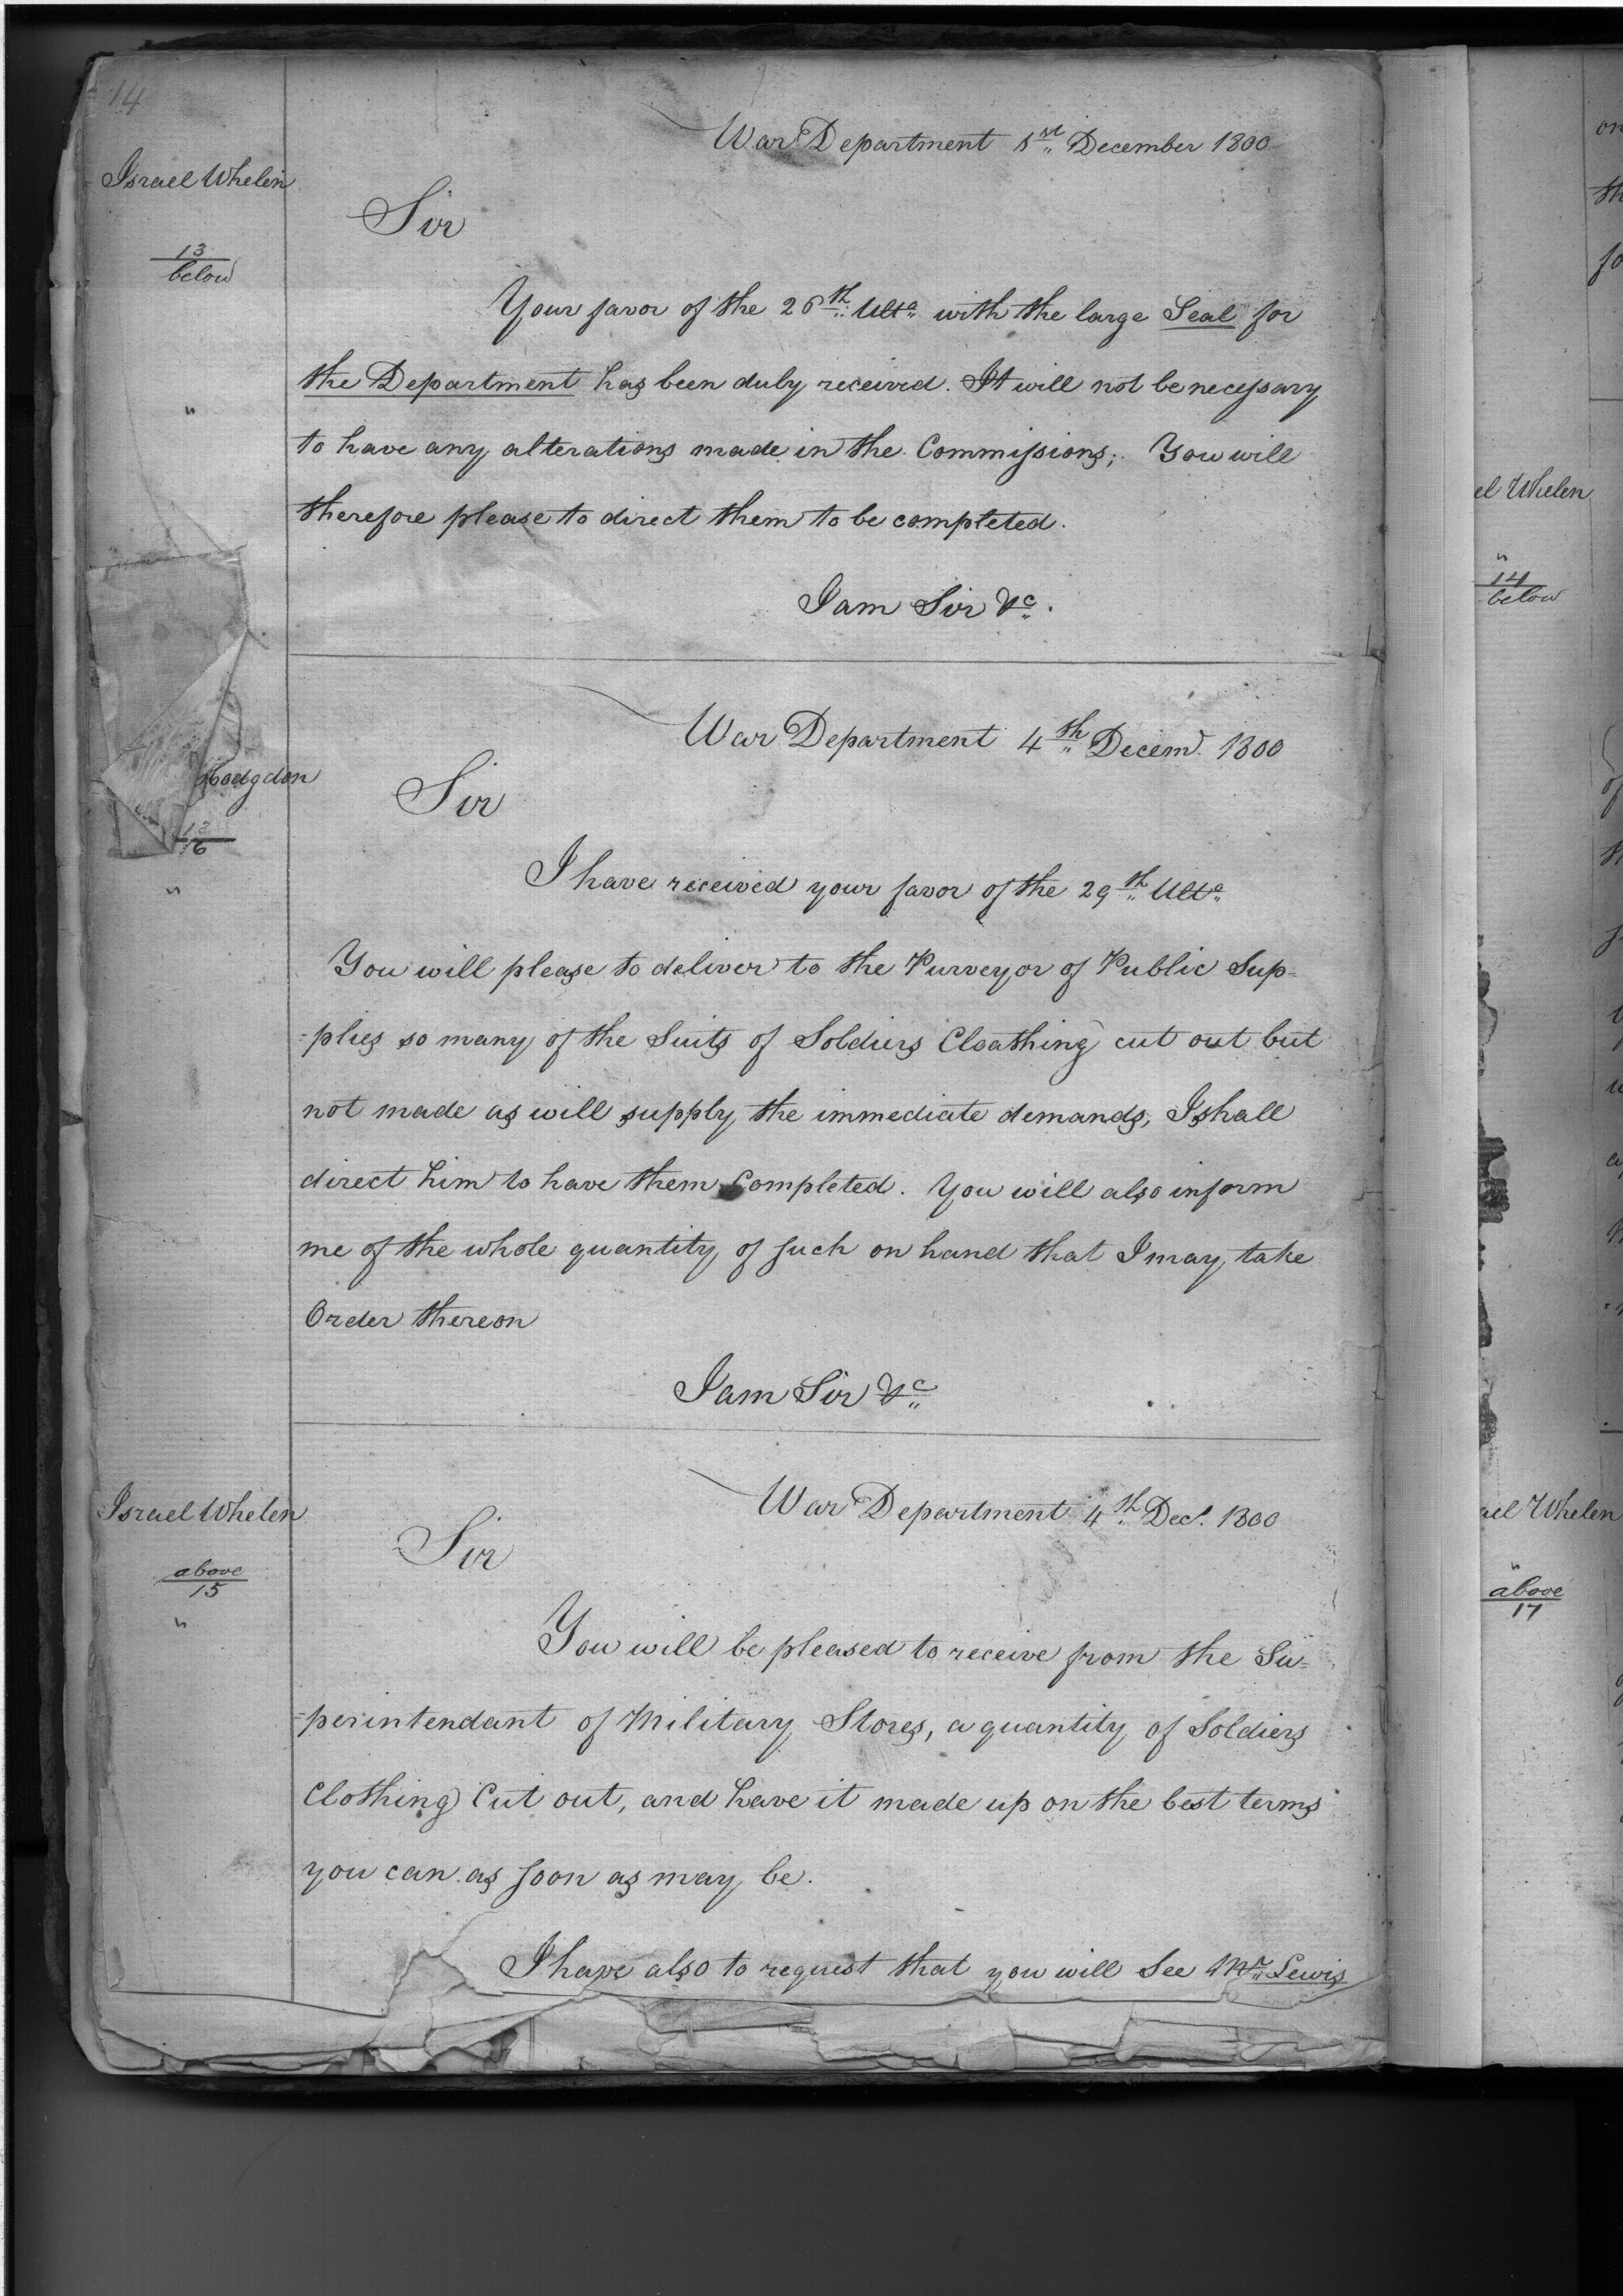 14
War Department 1st December 1800
Israel Whelen
Sir
13
below
Your favor of the 26th Ulto with the large Seal for
the Department has been duly received. It will not be necessary
"
to have any alterations made in the Commissions; You will
therefore please to direct them to be completed.
I am Sir &c.
War Department 4th Decemr 1800
Hodgdon
Sir
13
16
"
I have received your favor of the 29th Ulto
You will please to deliver to the Purveyor of Public Sup-
-plies so many of the Suits of Soldiers Cloathing cut out but
not made as will supply the immediate demands, I shall
direct him to have them Completed. You will also inform
me of the whole quantity of such on hand that I may take
Order thereon
I am Sir &c
War Department 4th Decr. 1800
Israel Whelen
Sir
above
15
"
You will be pleased to receive from the Su-
-perintendant of Military Stores, a quantity of Soldiers
Clothing Cut out, and have it made up on the best terms
you can as soon as may be.
I have also to request that you will See Mr Lewis
el Whelen
"
14
below
ael Whelen
"
above
17